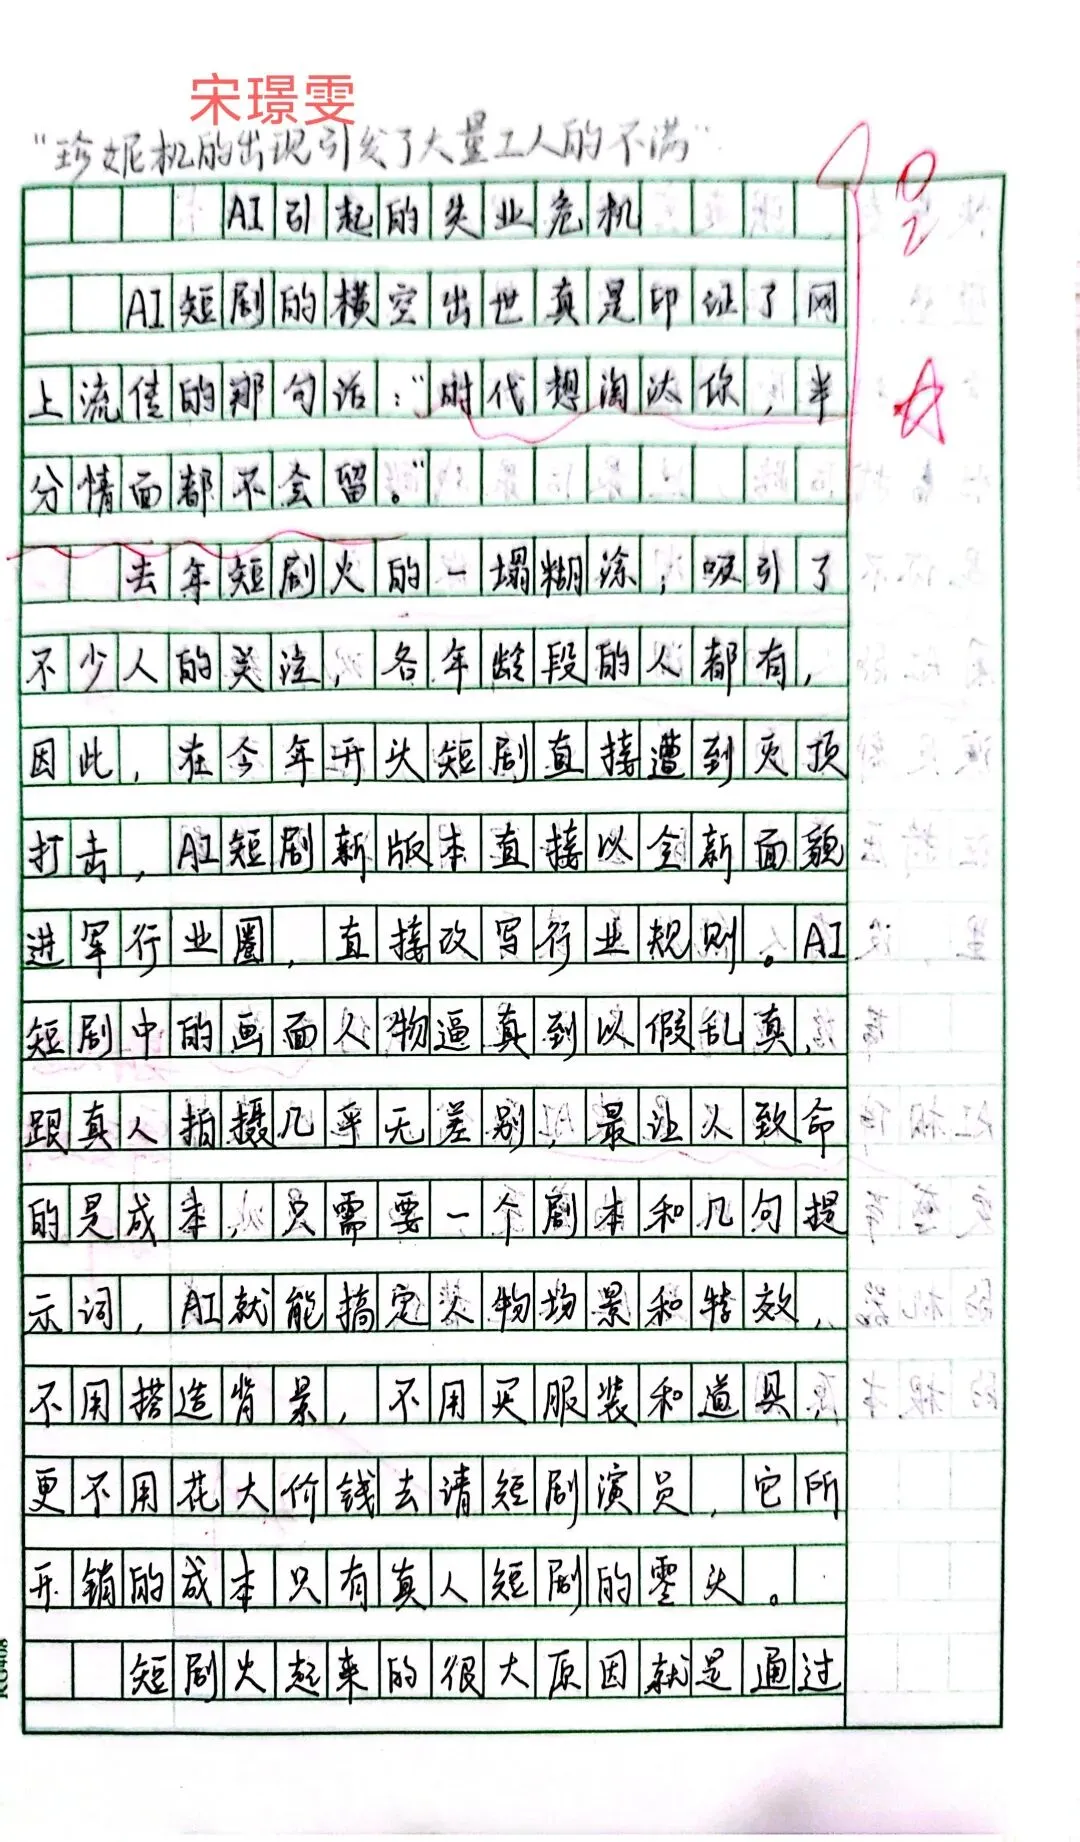 宋璟雯
"珍妮机的出现引发了大量工人的不满"
AI引起的失业危机
AI短剧的横空出世真是印证了网
上流传的那句话："时代想淘汰你，半
分情面都不会留。"
去年短剧火的一塌糊涂，吸引了
不少人的关注，各年龄段的人都有，
因此，在今年开头短剧直接遭到灭顶
打击，AI短剧新版本直接以全新面貌
进军行业圈，直接改写行业规则。AI
短剧中的画面人物逼真到以假乱真，
跟真人拍摄几乎无差别，最让人致命
的是成本，只需要一个剧本和几句提
示词，AI就能搞定人物场景和特效，
不用搭造背景，不用买服装和道具
更不用花大价钱去请短剧演员，它所
开销的成本只有真人短剧的零头。
短剧火起来的很大原因就是通过
RG408